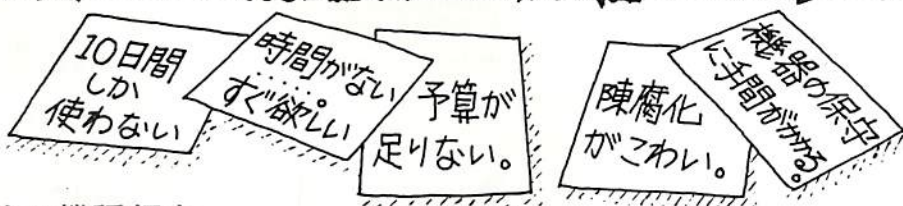 10日間
しか
使わない
時間がない
すぐ欲しい。
予算が
足りない。
陳腐化
がこわい。
機器の保守
に手間がかかる。